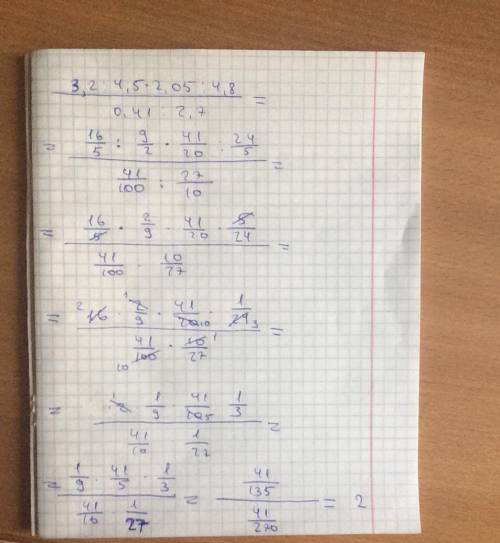 3,2 : 4,5 · 2,05 : 4,8 =
0,41 : 2,7
= 16/5 : 9/2 · 41/20 : 24/5 =
41/100 : 27/10
= 16/5 · 2/9 · 41/20 · 5/24 =
41/100 · 10/27
= 2 16 · 1 2/9 · 41/20 10 · 1/24 3 =
41/100 10 · 10 1/27
= 1 2 · 1/9 · 41/10 5 · 1/3 =
41/10 · 1/27
= 1/9 · 41/5 · 1/3 = 41/135 = 2
41/10 · 1/27 41/270